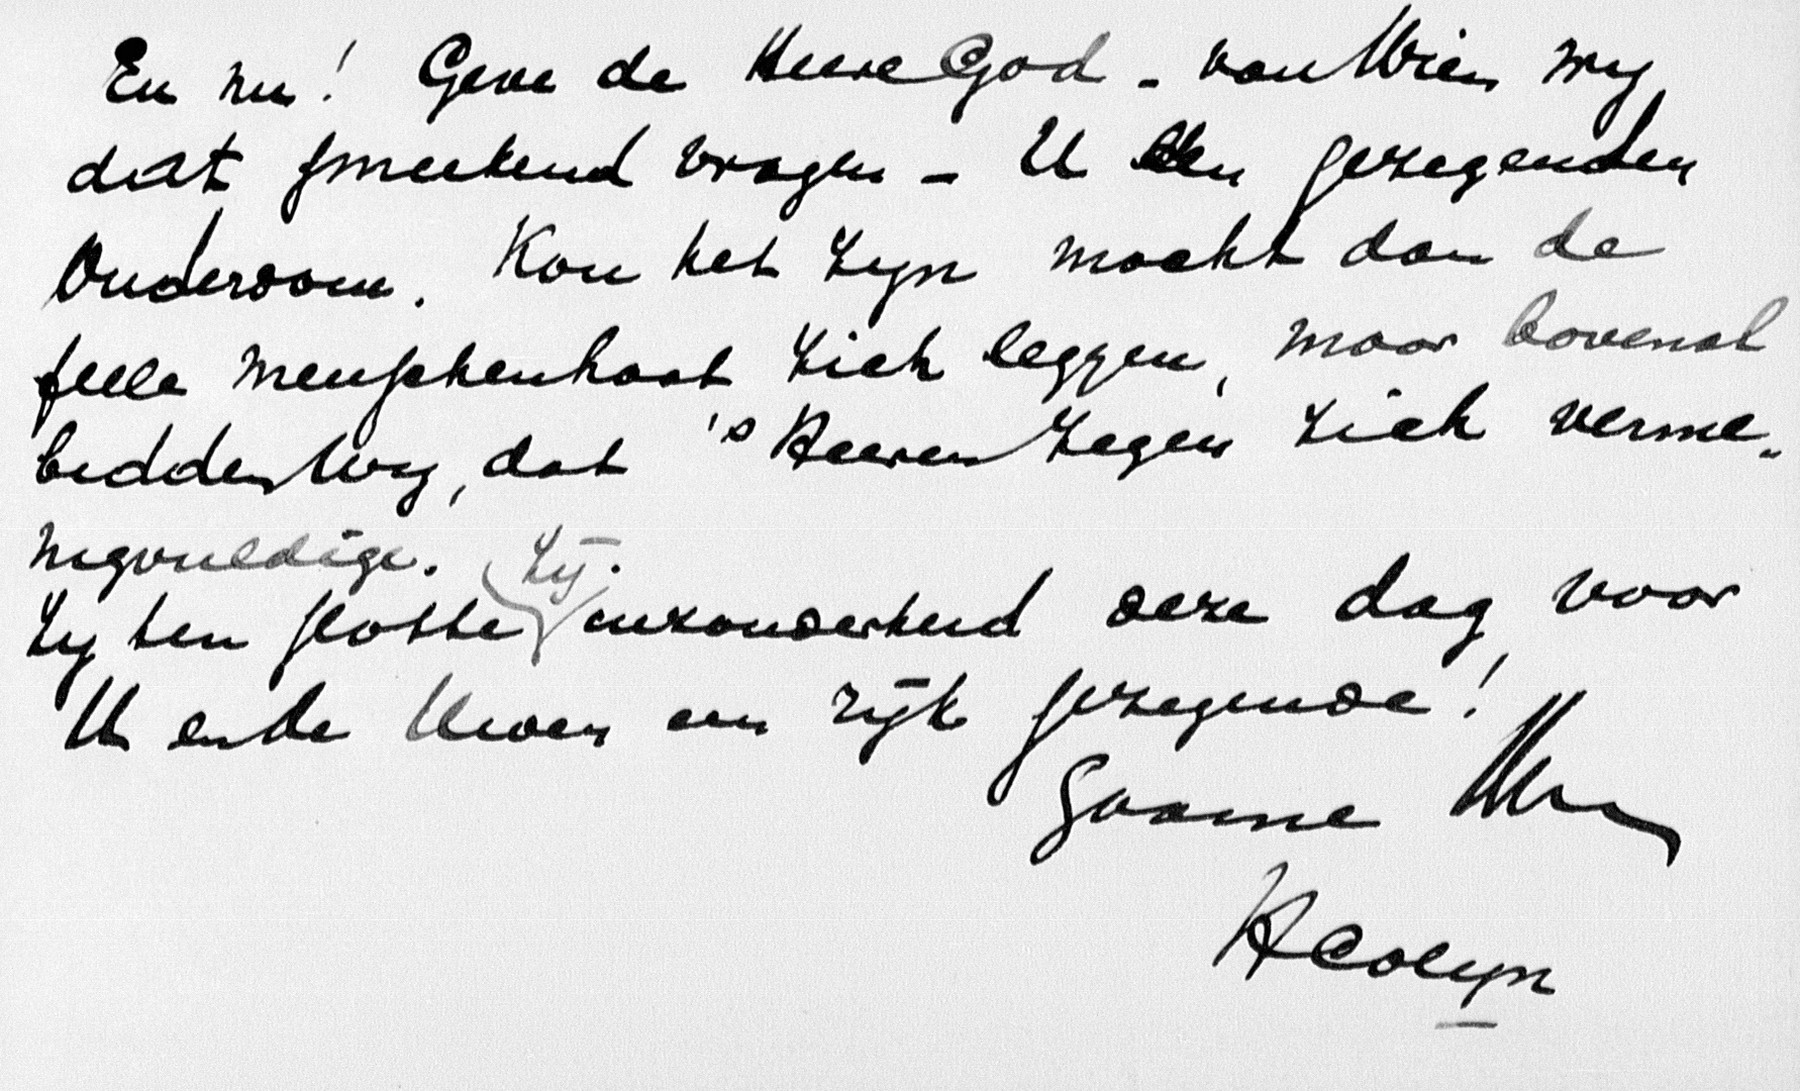 En nu! Geve de Heere God - van Wien wij
dat smeekend vragen - U een gezegenden
Ouderdom. Kon het zijn mocht dan de
felle menschenhaat zich leggen, maar bovenal
bidden wij, dat 's Heeren Zegen zich verme-
nigvuldige. Zij
Zij ten slotte inzonderheid deze dag voor
U en de Uwen een rijk gezegende!
Gaarne Uw
HColijn